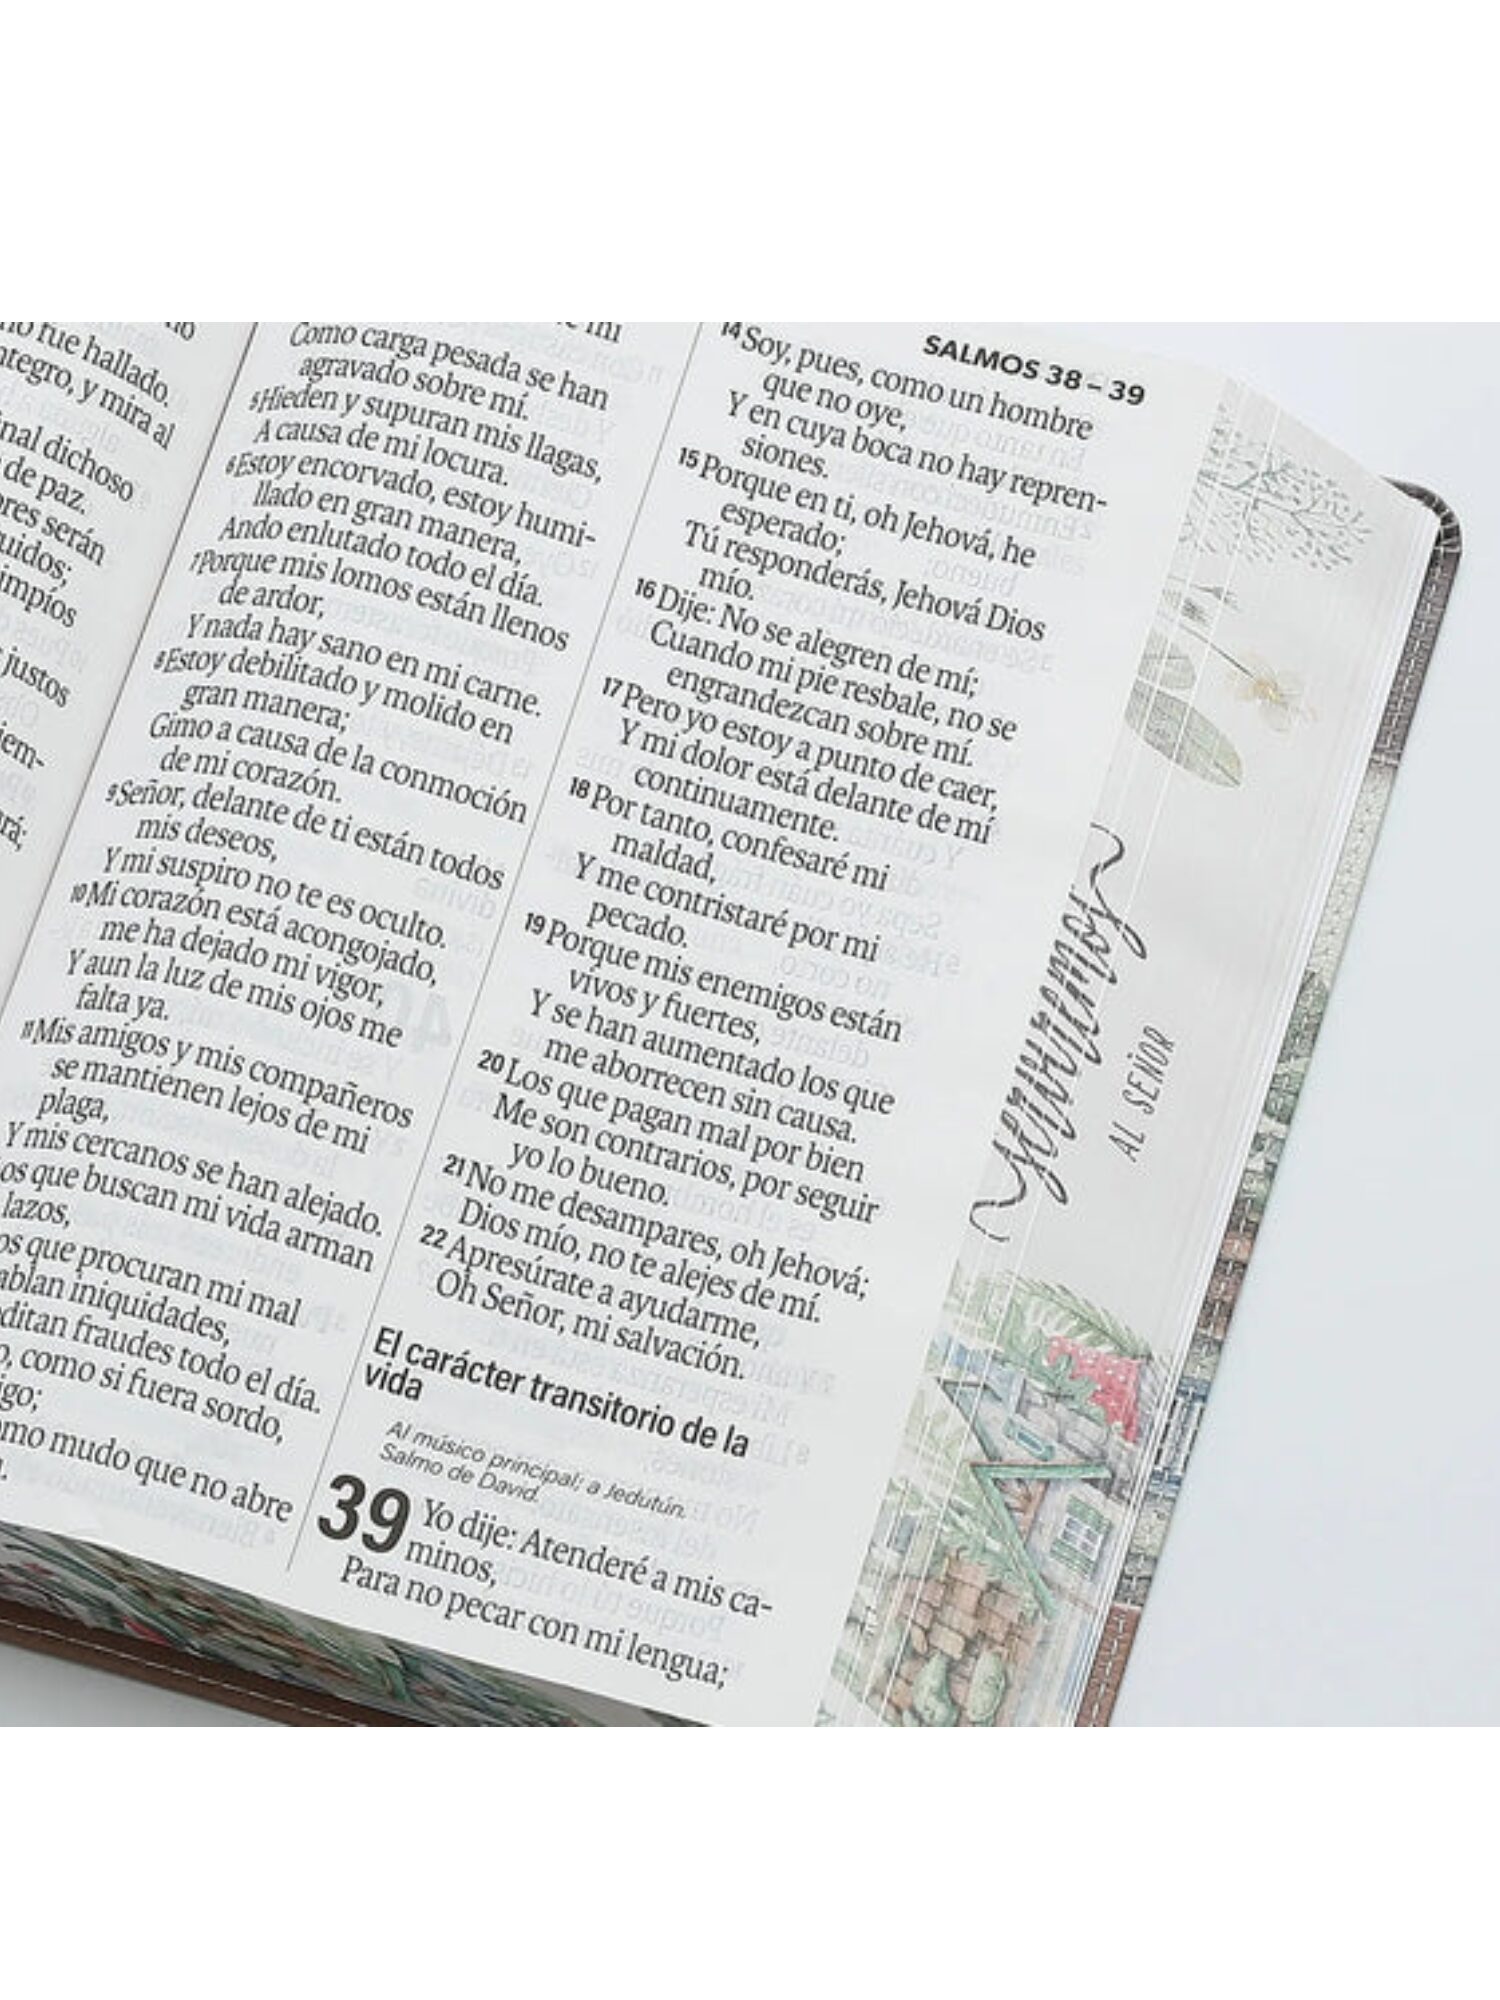 no
no fue hallado.
ntegro, y mira al
inal dichoso
de paz.
ores serán
uidos;
impíos
justos
iem-
rá;
de mi
Como carga pesada se han
agravado sobre mí.
5 Hieden y supuran mis llagas,
A causa de mi locura.
6 Estoy encorvado, estoy humi-
llado en gran manera,
Ando enlutado todo el día.
7 Porque mis lomos están llenos
de ardor,
Y nada hay sano en mi carne.
8 Estoy debilitado y molido en
gran manera;
Gimo a causa de la conmoción
de mi corazón.
9 Señor, delante de ti están todos
mis deseos,
Y mi suspiro no te es oculto.
10 Mi corazón está acongojado,
me ha dejado mi vigor,
Y aun la luz de mis ojos me
falta ya.
11 Mis amigos y mis compañeros
se mantienen lejos de mi
plaga,
Y mis cercanos se han alejado.
os que buscan mi vida arman
lazos,
os que procuran mi mal
ablan iniquidades,
editan fraudes todo el día.
o, como si fuera sordo,
igo;
omo mudo que no abre
a.
SALMOS 38 – 39
14 Soy, pues, como un hombre
que no oye,
Y en cuya boca no hay repren-
siones.
15 Porque en ti, oh Jehová, he
esperado;
Tú responderás, Jehová Dios
mío.
16 Dije: No se alegren de mí;
Cuando mi pie resbale, no se
engrandezcan sobre mí.
17 Pero yo estoy a punto de caer,
Y mi dolor está delante de mí
continuamente.
18 Por tanto, confesaré mi
maldad,
Y me contristaré por mi
pecado.
19 Porque mis enemigos están
vivos y fuertes,
Y se han aumentado los que
me aborrecen sin causa.
20 Los que pagan mal por bien
Me son contrarios, por seguir
yo lo bueno.
21 No me desampares, oh Jehová;
Dios mío, no te alejes de mí.
22 Apresúrate a ayudarme,
Oh Señor, mi salvación.
El carácter transitorio de la
vida
Al músico principal; a Jedutún.
Salmo de David.
39 Yo dije: Atenderé a mis ca-
minos,
Para no pecar con mi lengua;
serviremos
AL SEÑOR